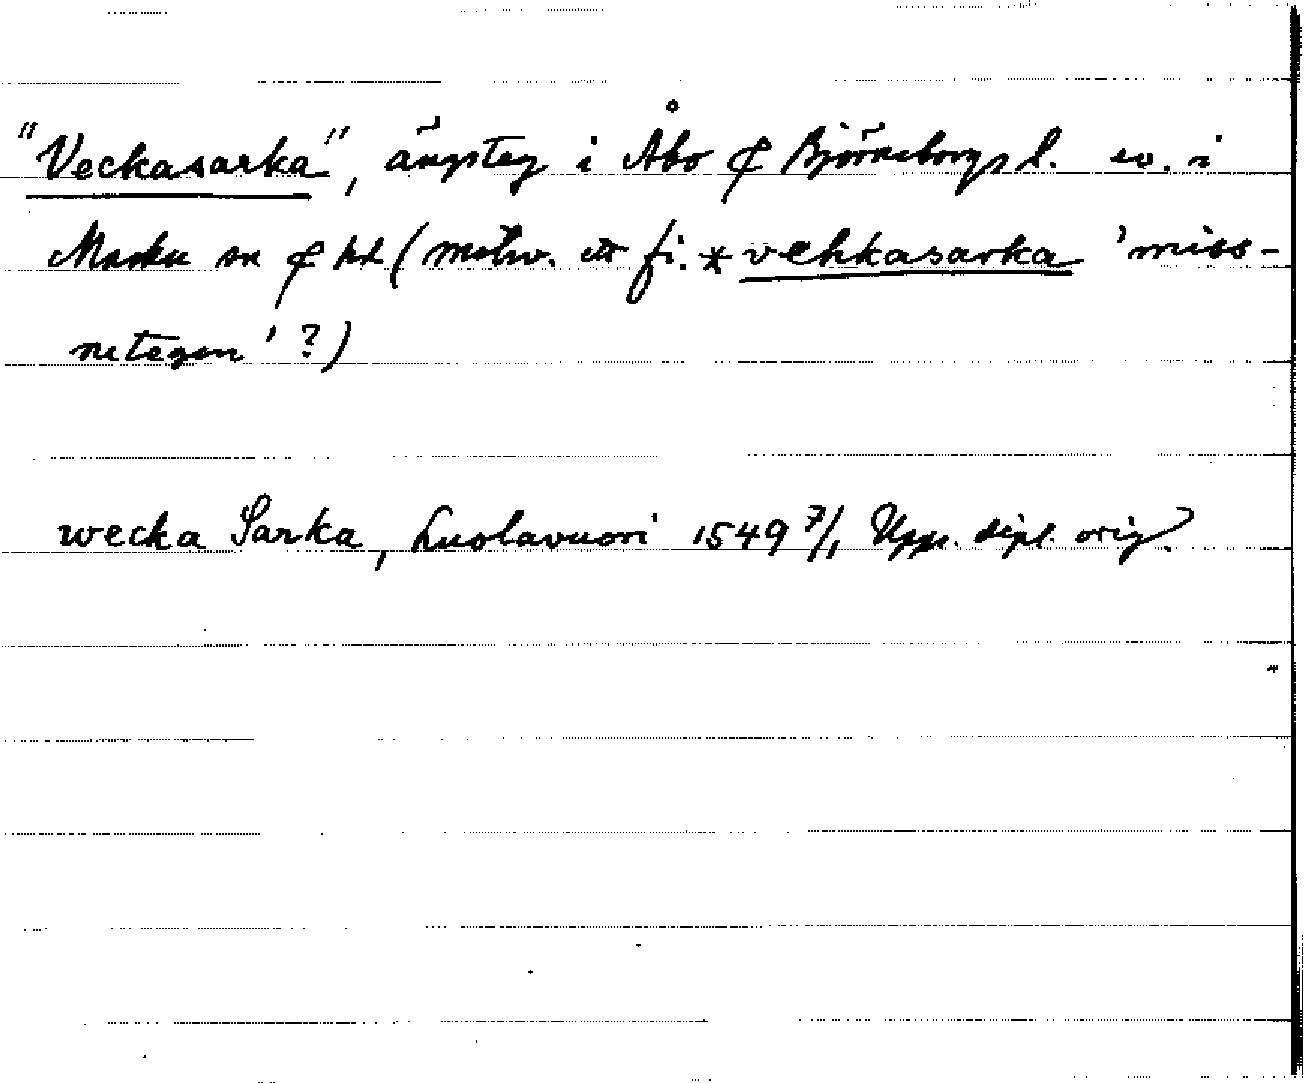 "Veckasarka", ängsteg i Åbo & Björneborgs l. ev. i
Masku sn & hd (motsv. ett fi. *vehkasarka 'miss-
netegen'?)
wecka Sarka, Luolavuori 1549 7/1 Upps. dipl. orig.